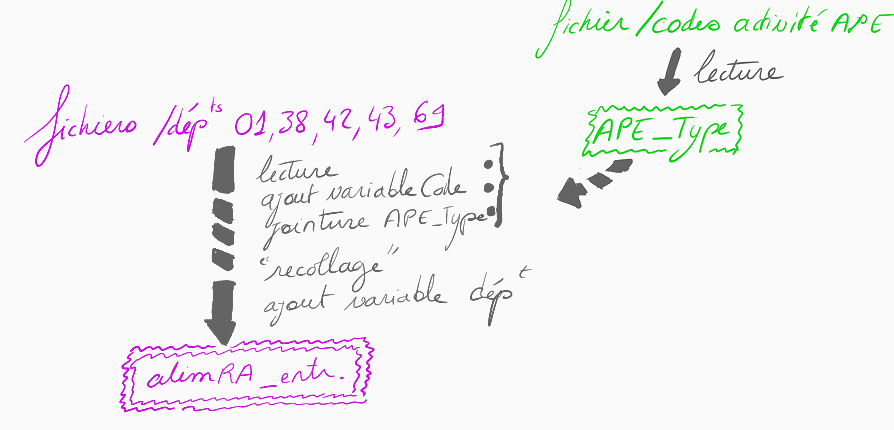 fichier/codes activité APE
lecture
APE_Type
fichiers /dépts 01,38,42,43,69
lecture
ajout variable Code
jointure APE_Type
"recollage"
ajout variable dépt
alimRA_entr.